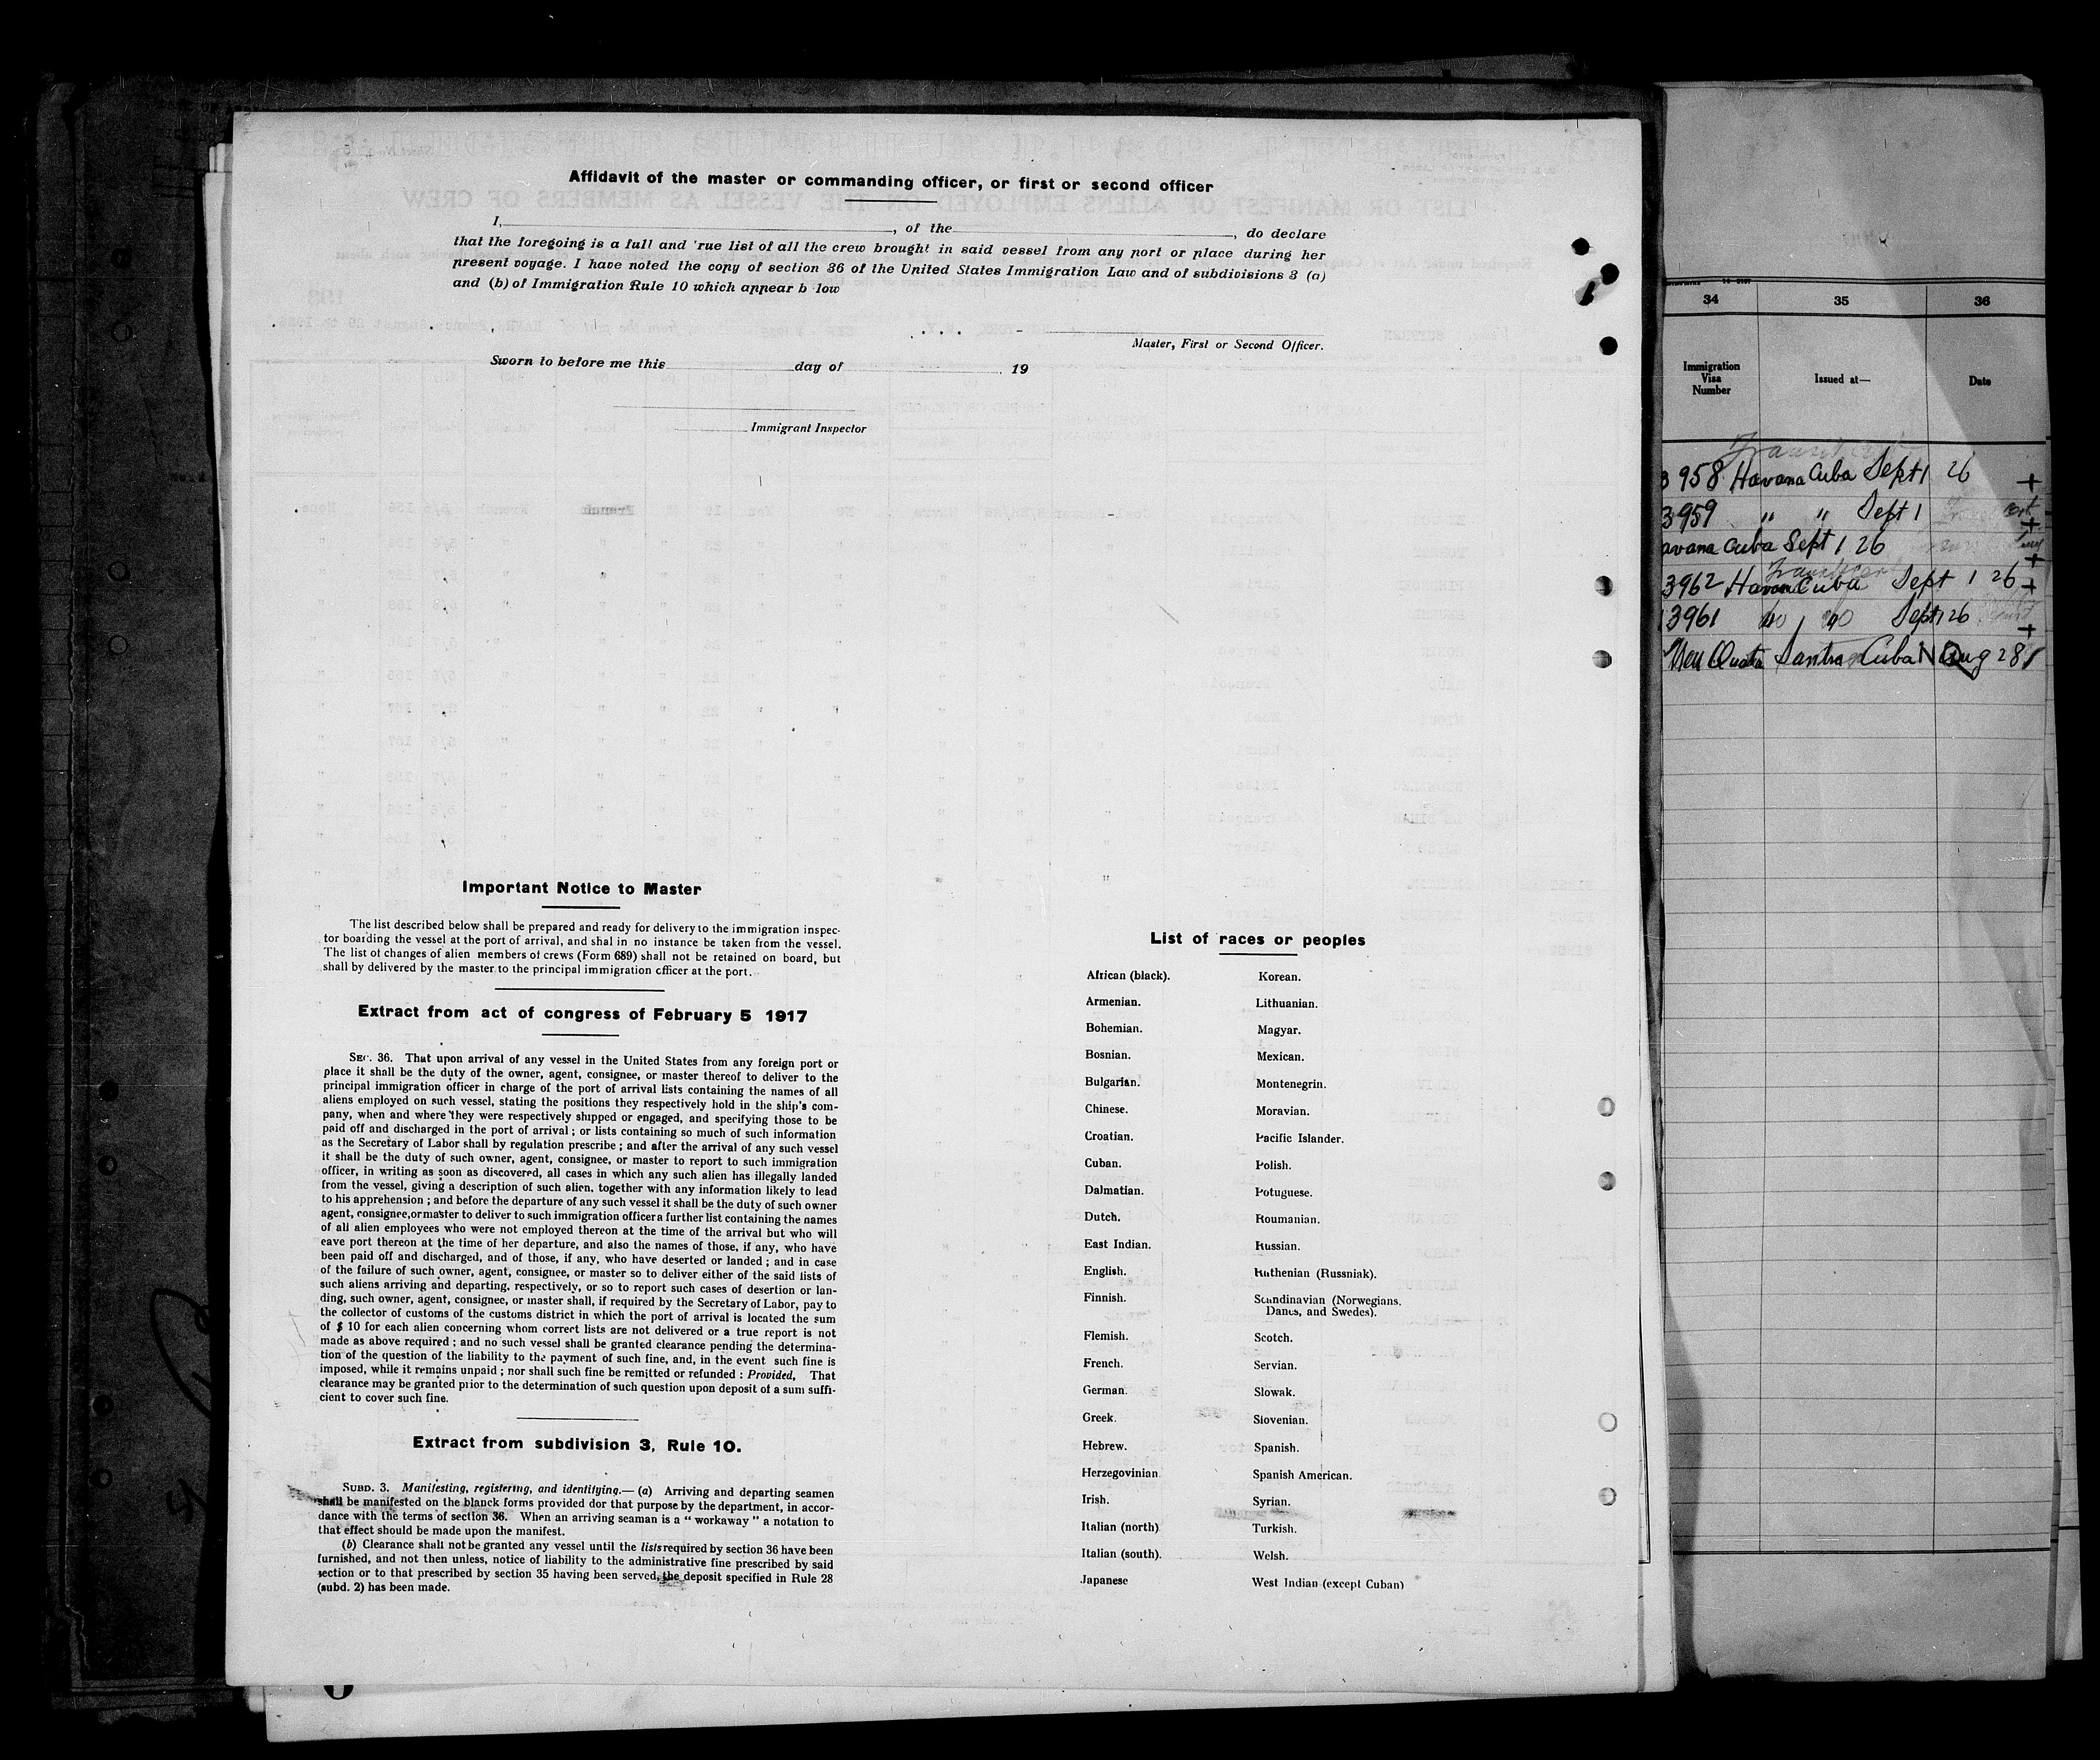 Affidavit of the master or commanding officer, or first or second officer
I,                , of the                , do declare
that the foregoing is a full and 'rue list of all the crew brought in said vessel from any port or place during her
present voyage. I have noted the copy of section 36 of the United States Immigration Law and of subdivisions 3 (a)
and (b) of Immigration Rule 10 which appear b low
Master, First or Second Officer.
Sworn to before me this                day of                , 19
Immigrant Inspector
Important Notice to Master
The list described below shall be prepared and ready for delivery to the immigration inspec-
tor boarding the vessel at the port of arrival, and shal in no instance be taken from the vessel.
The list of changes of alien members of crews (Form 689) shall not be retained on board, but
shall by delivered by the master to the principal immigration officer at the port.
Extract from act of congress of February 5 1917
SEC. 36. That upon arrival of any vessel in the United States from any foreign port or
place it shall be the duty of the owner, agent, consignee, or master thereof to deliver to the
principal immigration officer in charge of the port of arrival lists containing the names of all
aliens employed on such vessel, stating the positions they respectively hold in the ship's com-
pany, when and where they were respectively shipped or engaged, and specifying those to be
paid off and discharged in the port of arrival ; or lists containing so much of such information
as the Secretary of Labor shall by regulation prescribe ; and after the arrival of any such vessel
it shall be the duty of such owner, agent, consignee, or master to report to such immigration
officer, in writing as soon as discovered, all cases in which any such alien has illegally landed
from the vessel, giving a description of such alien, together with any information likely to lead
to his apprehension ; and before the departure of any such vessel it shall be the duty of such owner
agent, consignee,ormaster to deliver to such immigration officer a further list containing the names
of all alien employees who were not employed thereon at the time of the arrival but who will
eave port thereon at the time of her departure, and also the names of those, if any, who have
been paid off and discharged, and of those, if any, who have deserted or landed ; and in case
of the failure of such owner, agent, consignee, or master so to deliver either of the said lists of
such aliens arriving and departing, respectively, or so to report such cases of desertion or lan-
ding, such owner, agent, consignee, or master shall, if required by the Secretary of Labor, pay to
the collector of customs of the customs district in which the port of arrival is located the sum
of $ 10 for each alien concerning whom correct lists are not delivered or a true report is not
made as above required ; and no such vessel shall be granted clearance pending the determina-
tion of the question of the liability to the payment of such fine, and, in the event such fine is
imposed, while it remains unpaid ; nor shall such fine be remitted or refunded : Provided, That
clearance may be granted prior to the determination of such question upon deposit of a sum suffi-
cient to cover such fine.
Extract from subdivision 3, Rule 10.
SUBD. 3. Manifesting, registering, and identifying.— (a) Arriving and departing seamen
shall be manifested on the blanck forms provided dor that purpose by the department, in accor-
dance with the terms of section 36. When an arriving seaman is a “ workaway ” a notation to
that effect should be made upon the manifest.
(b) Clearance shall not be granted any vessel until the lists required by section 36 have been
furnished, and not then unless, notice of liability to the administrative fine prescribed by said
section or to that prescribed by section 35 having been served, the deposit specified in Rule 28
(subd. 2) has been made.
List of races or peoples
African (black).
Armenian.
Bohemian.
Bosnian.
Bulgarian.
Chinese.
Croatian.
Cuban.
Dalmatian.
Dutch.
East Indian.
English.
Finnish.
Flemish.
French.
German.
Greek.
Hebrew.
Herzegovinian
Irish.
Italian (north)
Italian (south).
Japanese
Korean.
Lithuanian.
Magyar.
Mexican.
Montenegrin.
Moravian.
Pacific Islander.
Polish.
Potuguese.
Roumanian.
Russian.
Ruthenian (Russniak).
Scandinavian (Norwegians,
Danes, and Swedes).
Scotch.
Servian.
Slowak.
Slovenian.
Spanish.
Spanish American.
Syrian.
Turkish.
Welsh.
West Indian (except Cuban)
34 35 36
Immigration
Visa
Number
Issued at—
Date
3958 Havana Cuba Sept 1 26
3959 " " Sept 1
avana Cuba Sept 1 26
3962 Havana Cuba Sept 1 26
3961 do do Sept 1 26
Non Quota Cuba Aug 28